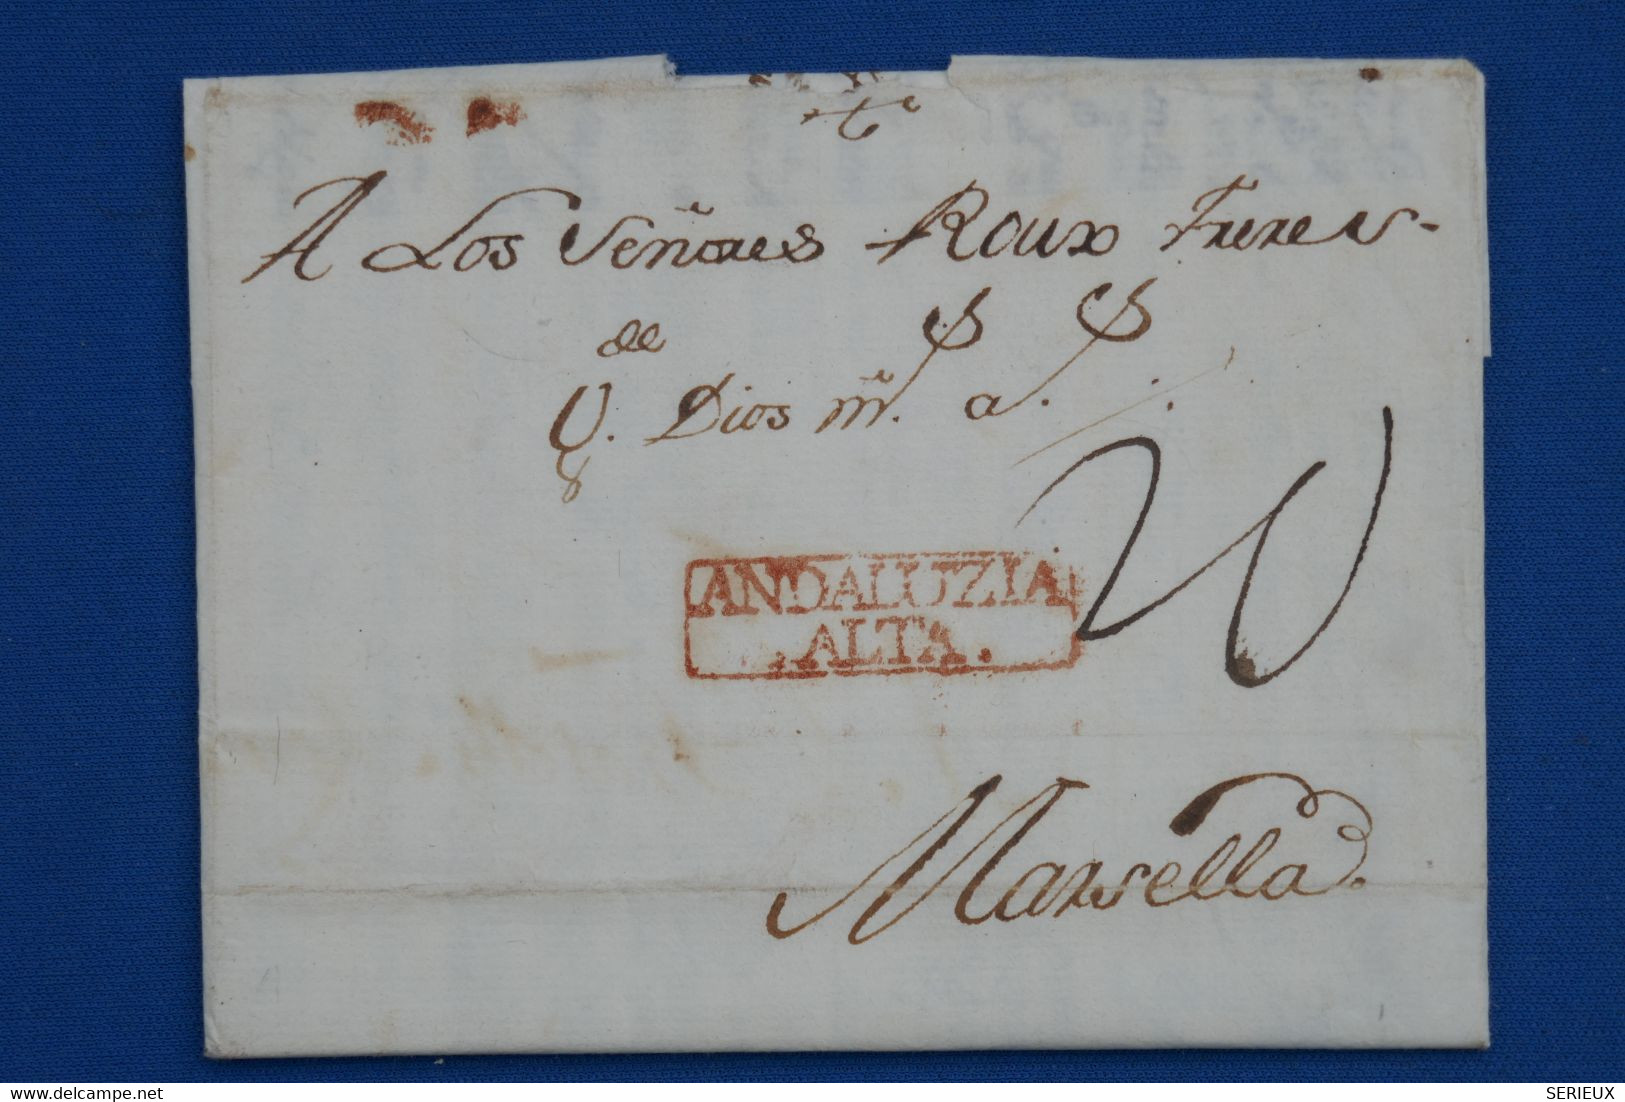 A Los Señores Roux Freres
de
Dios m. a.
20
ANDALUZIA
.ALTA.
Marsella
www.delcampe.net
SERIEUX